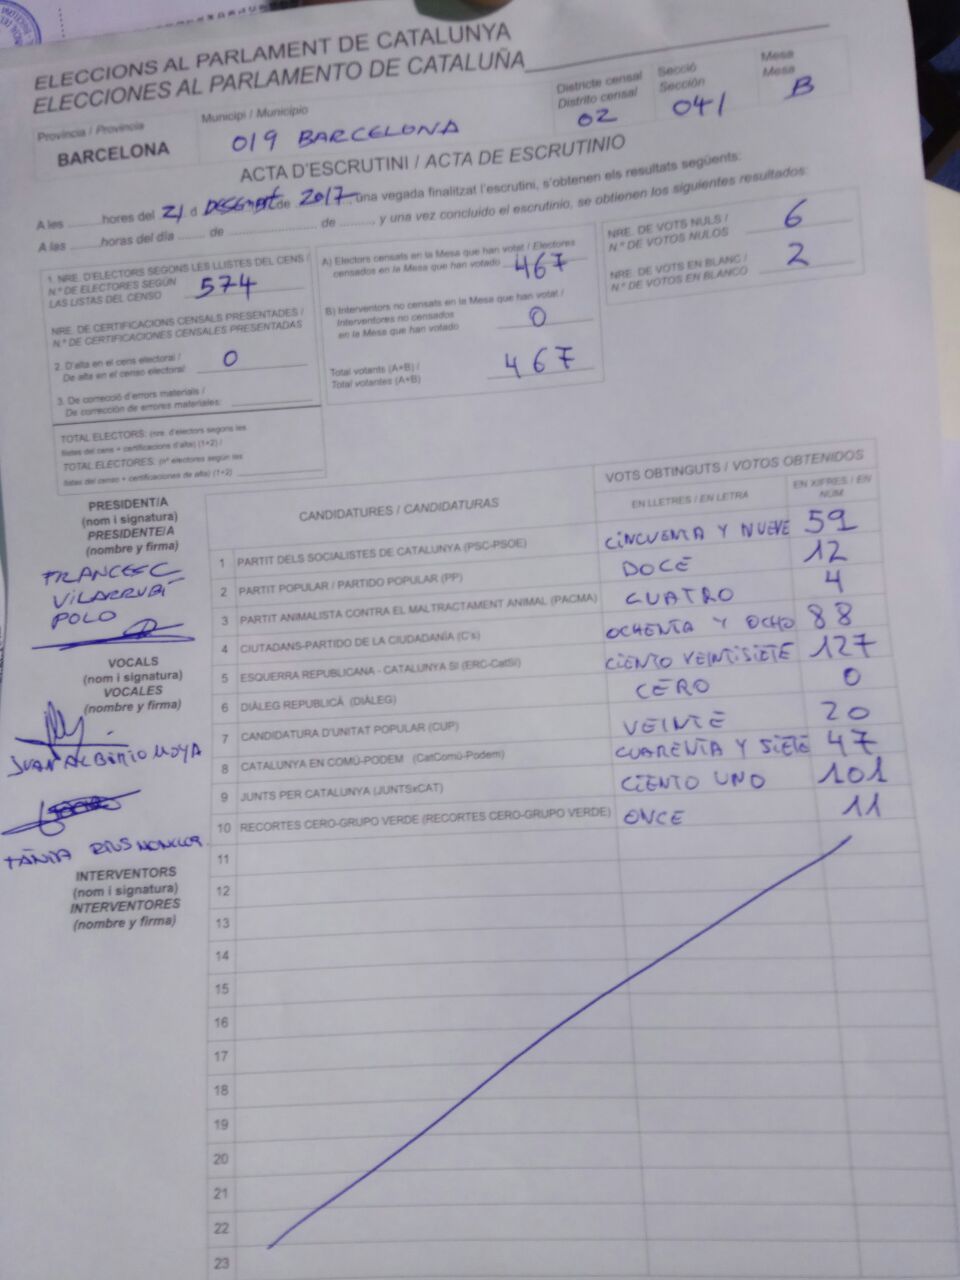 ELECCIONS AL PARLAMENT DE CATALUNYA
ELECCIONES AL PARLAMENTO DE CATALUÑA
Provincia / Provincia
BARCELONA
Municipi / Municipio
019 BARCELONA
Districte censal
Distrito censal
02
Secció
Sección
041
Mesa
Mesa
B
ACTA D'ESCRUTINI / ACTA DE ESCRUTINIO
A les ......... hores del 21 d de 2017, una vegada finalitzat l'escrutini, s'obtenen els resultats següents:
A las ......... horas del día ....... de ....................... de ........., y una vez concluido el escrutinio, se obtienen los siguientes resultados:
1. NRE. D'ELECTORS SEGONS LES LLISTES DEL CENS /
N.º DE ELECTORES SEGÚN
LAS LISTAS DEL CENSO
574
NRE. DE CERTIFICACIONS CENSALS PRESENTADES /
N.º DE CERTIFICACIONES CENSALES PRESENTADAS
2. D'alta en el cens electoral /
De alta en el censo electoral:
0
3. De correcció d'errors materials /
De corrección de errores materiales:
TOTAL ELECTORS: (nre. d'electors segons les
llistes del cens + certificacions d'alta) (1+2) /
TOTAL ELECTORES: (nº electores según las
listas del censo + certificaciones de alta) (1+2)
A) Electors censats en la Mesa que han votat / Electores
censados en la Mesa que han votado
467
B) Interventors no censats en la Mesa que han votat /
Interventores no censados
en la Mesa que han votado
0
Total votants (A+B) /
Total votantes (A+B)
467
NRE. DE VOTS NULS /
N.º DE VOTOS NULOS
6
NRE. DE VOTS EN BLANC /
N.º DE VOTOS EN BLANCO
2
PRESIDENT/A
(nom i signatura)
PRESIDENTE/A
(nombre y firma)
FRANCESC
VILARRUBÍ
POLO
VOCALS
(nom i signatura)
VOCALES
(nombre y firma)
JUAN ALBERTO MOYA
TÀNIA RIUS
INTERVENTORS
(nom i signatura)
INTERVENTORES
(nombre y firma)
CANDIDATURES / CANDIDATURAS
VOTS OBTINGUTS / VOTOS OBTENIDOS
EN LLETRES / EN LETRA
EN XIFRES / EN NÚM
1 PARTIT DELS SOCIALISTES DE CATALUNYA (PSC-PSOE) CINCUENTA Y NUEVE 59
2 PARTIT POPULAR / PARTIDO POPULAR (PP) DOCE 12
3 PARTIT ANIMALISTA CONTRA EL MALTRACTAMENT ANIMAL (PACMA) CUATRO 4
4 CIUTADANS-PARTIDO DE LA CIUDADANÍA (C's) OCHENTA Y OCHO 88
5 ESQUERRA REPUBLICANA - CATALUNYA SI (ERC-CatSí) CIENTO VEINTISIETE 127
6 DIÀLEG REPUBLICÀ (DIÀLEG) CERO 0
7 CANDIDATURA D'UNITAT POPULAR (CUP) VEINTE 20
8 CATALUNYA EN COMÚ-PODEM (CatComú-Podem) CUARENTA Y SIETE 47
9 JUNTS PER CATALUNYA (JUNTSxCAT) CIENTO UNO 101
10 RECORTES CERO-GRUPO VERDE (RECORTES CERO-GRUPO VERDE) ONCE 11
11
12
13
14
15
16
17
18
19
20
21
22
23